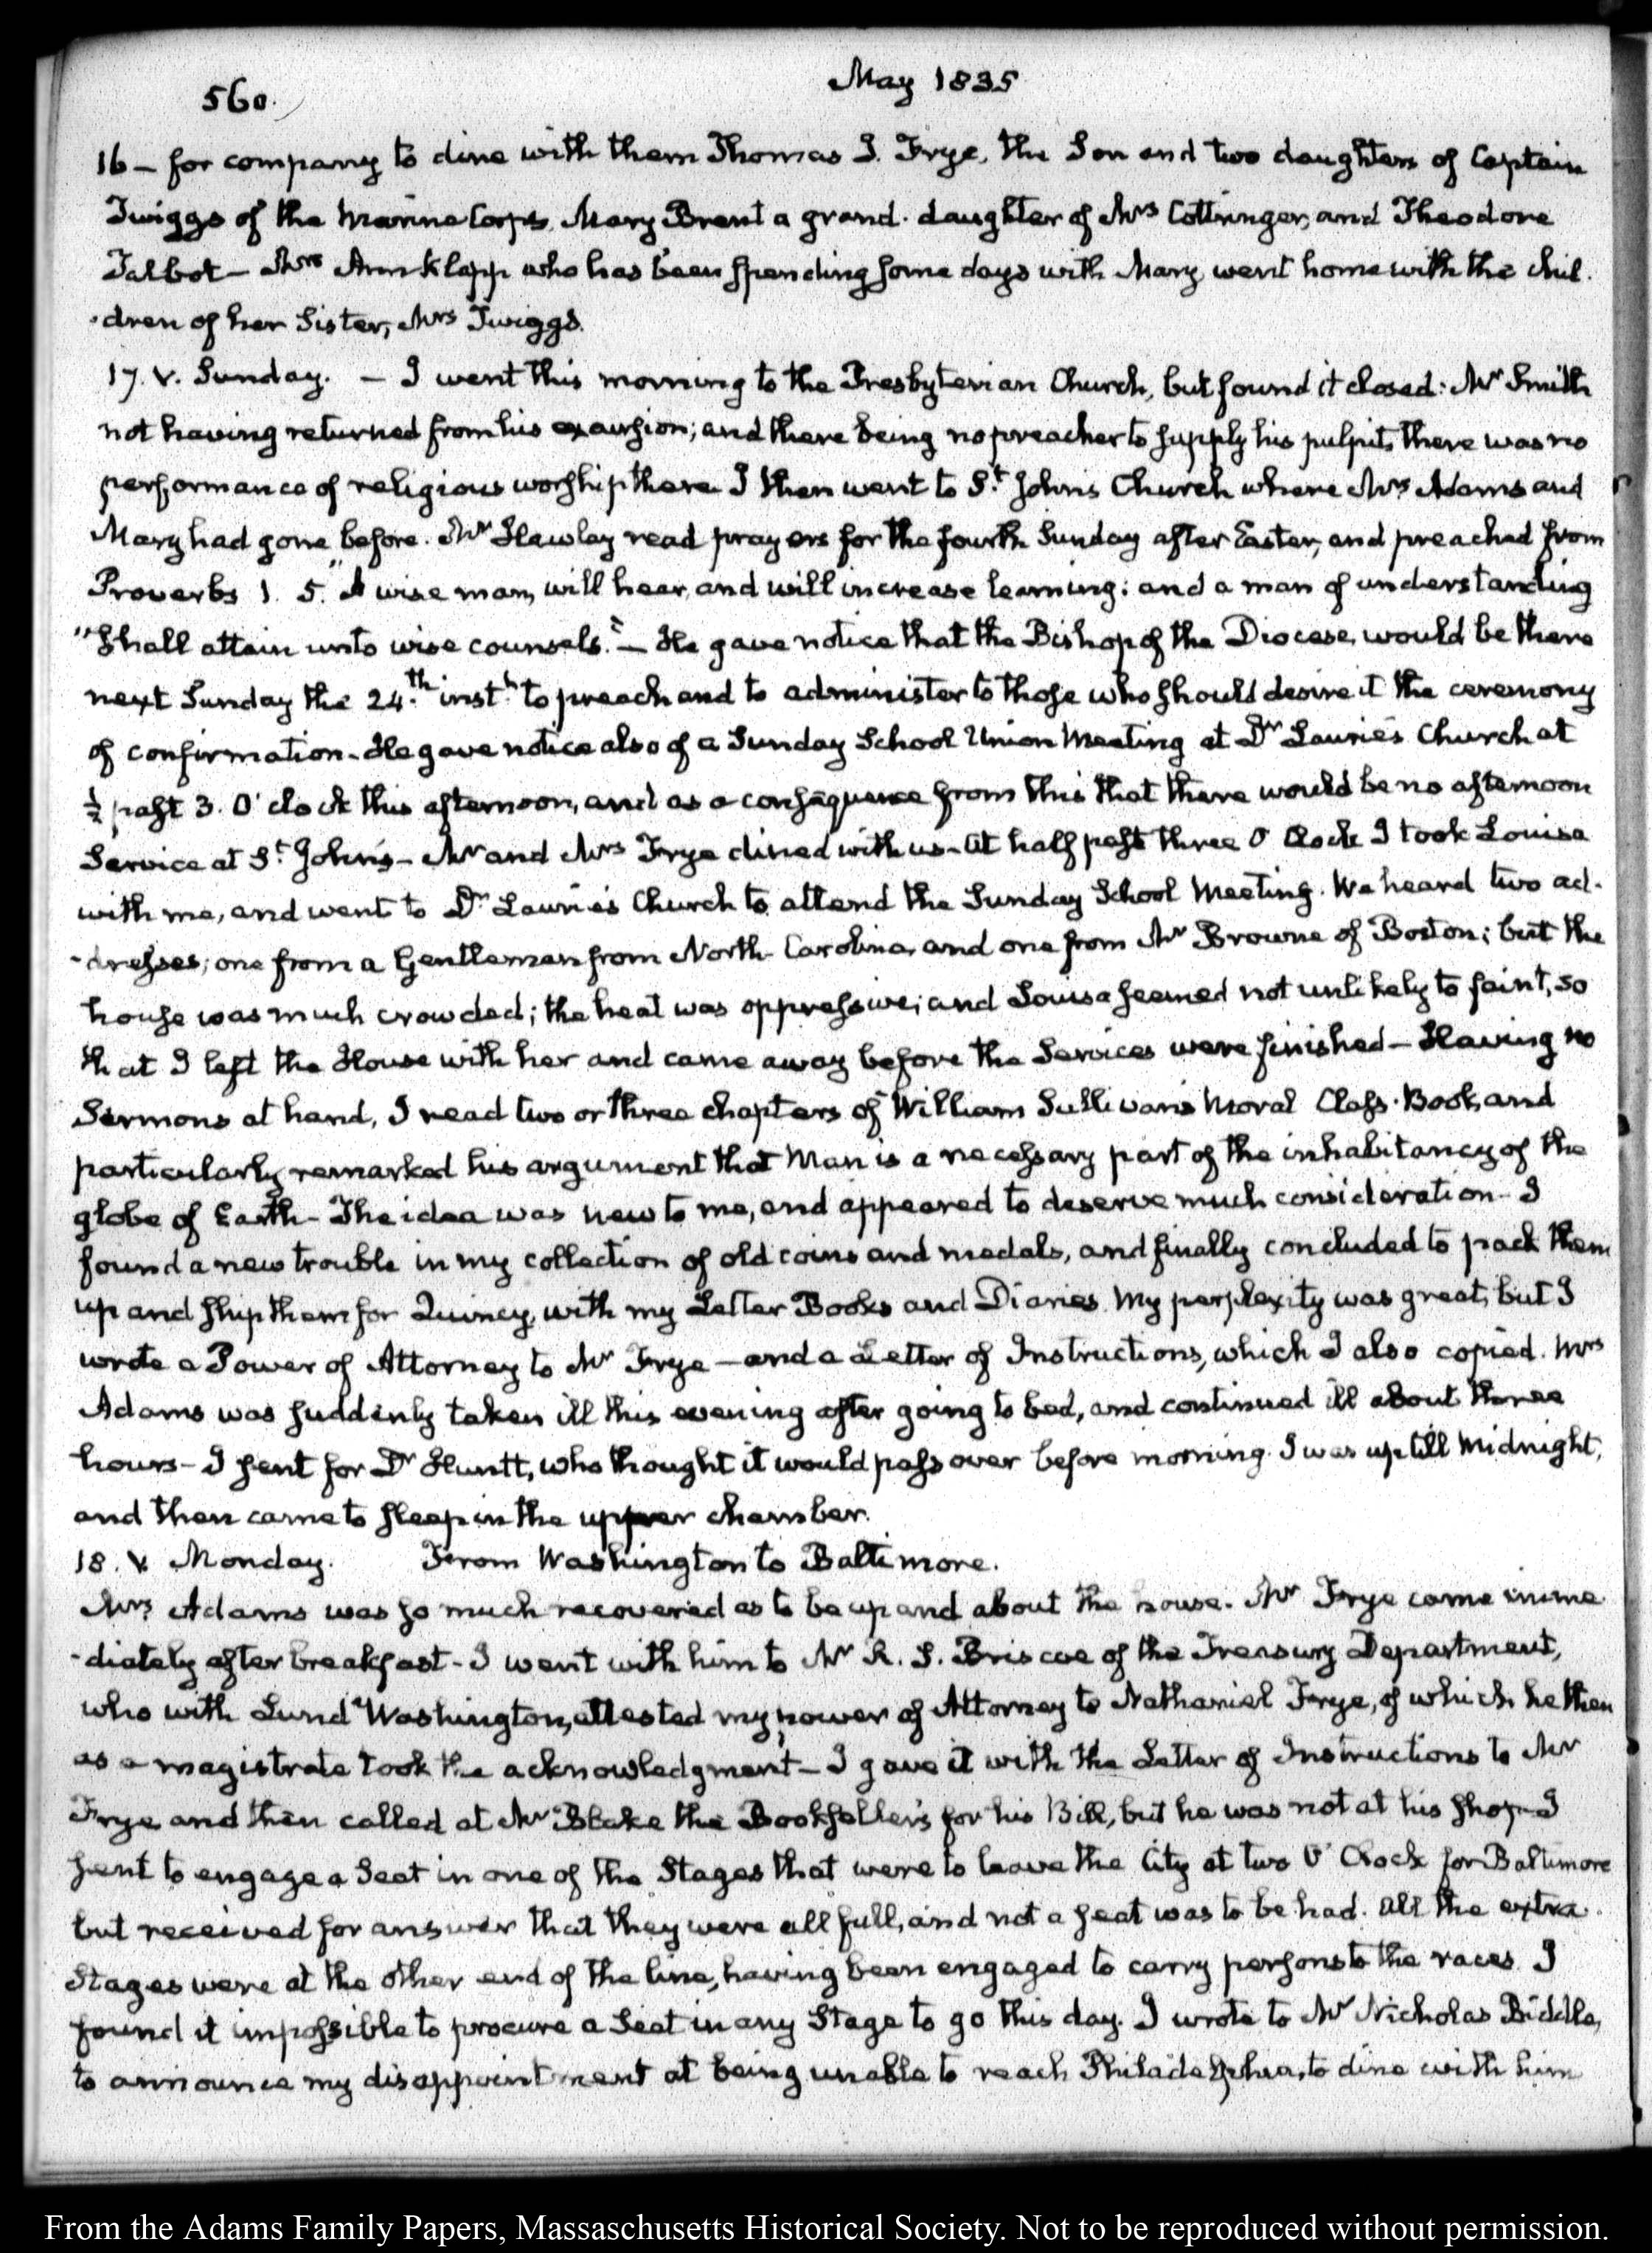 560.
May 1835
16 — for company to dine with them Thomas J. Frye, the Son and two daughters of Captain
Twiggs of the Marine Corps, Mary Brent a grand-daughter of Mrs Cottringer, and Theodore
Talbot — Mrs Ann Klapp who has been spending some days with Mary went home with the chil-
-dren of her Sister, Mrs Twiggs.
17. V. Sunday. — I went this morning to the Presbyterian Church, but found it closed: Mr Smith
not having returned from his excursion; and there being no preacher to supply his pulpit, there was no
performance of religious worship there. I then went to St. John's Church where Mrs Adams and
Mary had gone before. Mr Hawley read prayers for the fourth Sunday after Easter, and preached from
Proverbs 1. 5. "A wise man, will hear, and will increase learning: and a man of understanding
"shall attain unto wise counsels." — He gave notice that the Bishop of the Diocese, would be there
next Sunday the 24.th inst.t to preach and to administer to those who should desire it the ceremony
of confirmation. He gave notice also of a Sunday School Union Meeting at Dr Laurie's Church at
½ past 3. O'clock this afternoon, and as a consequence from this that there would be no afternoon
Service at St. John's — Mr and Mrs Frye dined with us — At half past three O'Clock I took Louisa
with me, and went to Dr Laurie's Church to attend the Sunday School Meeting. We heard two ad-
-dresses; one from a Gentleman from North-Carolina, and one from Mr Browne of Boston; but the
house was much crowded; the heat was oppressive; and Louisa seemed not unlikely to faint, so
that I left the House with her and came away before the Services were finished — Having no
Sermons at hand, I read two or three chapters of William Sullivan's Moral Class-Book, and
particularly remarked his argument that Man is a necessary part of the inhabitancy of the
globe of Earth — The idea was new to me, and appeared to deserve much consideration — I
found a new trouble in my collection of old coins and medals, and finally concluded to pack them
up and ship them for Quincy, with my Letter Books and Diaries. My perplexity was great, but I
wrote a Power of Attorney to Mr Frye — and a Letter of Instructions, which I also copied. Mrs
Adams was suddenly taken ill this evening after going to bed, and continued ill about three
hours — I sent for Dr Huntt, who thought it would pass over before morning. I was up till Midnight,
and then came to sleep in the upper chamber.
18. V. Monday. From Washington to Baltimore.
Mrs Adams was so much recovered as to be up and about the house. Mr Frye came imme-
-diately after breakfast — I went with him to Mr R. S. Briscoe of the Treasury Department,
who with Lund Washington, attested my power of Attorney to Nathaniel Frye, of which he then
as a magistrate took the acknowledgment — I gave it with the Letter of Instructions to Mr
Frye and then called at Mr Blake the Bookseller's for his Bill, but he was not at his shop — I
sent to engage a Seat in one of the Stages that were to leave the City at two O'Clock for Baltimore
but received for answer that they were all full, and not a seat was to be had. All the extra-
Stages were at the other end of the line, having been engaged to carry persons to the races. I
found it impossible to procure a Seat in any Stage to go this day. I wrote to Mr Nicholas Biddle,
to announce my disappointment at being unable to reach Philadelphia, to dine with him
From the Adams Family Papers, Massaschusetts Historical Society. Not to be reproduced without permission.